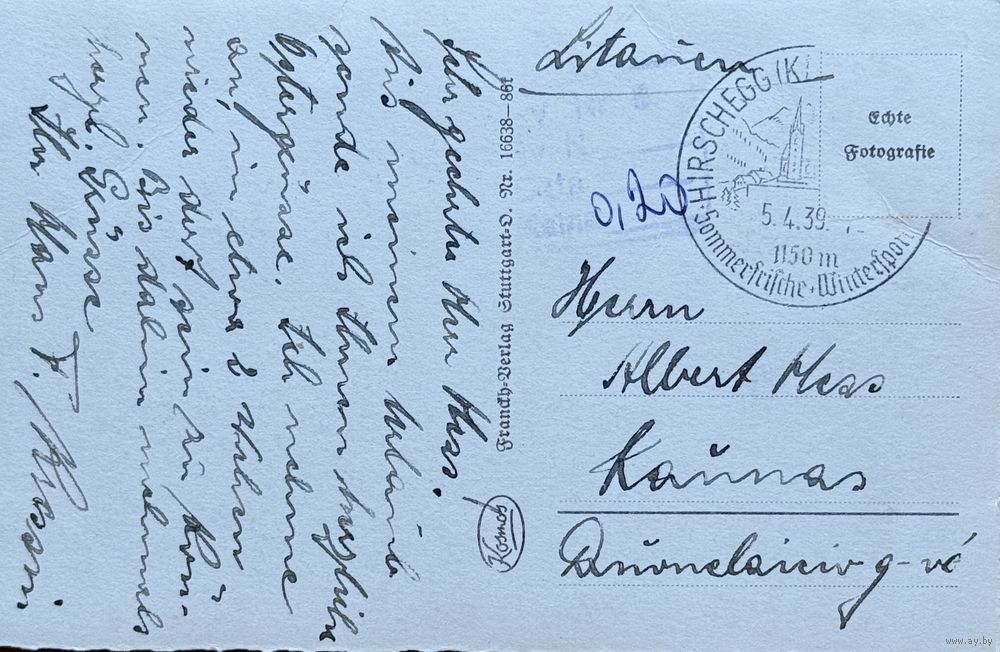 Sehr geehrter Herr Hess.
Aus meinem Urlaub
sende ich Ihnen herzliche
Ostergrüsse. Ich nehme
an, in etwa 2 Wochen
wieder dort sein zu kön-
nen. Bis dahin nochmals
herzl. Grüsse
Ihr Hans F.
Franckh-Verlag Stuttgart-O. Nr. 16638—86f
Kosmos
Litauen
HIRSCHEGG (KL
5.4.39
1150 m
Sommerfrische + Winterspor
0,20
Echte
Fotografie
Herrn
Albert Hess
Kaunas
g-vė
www.ay.by